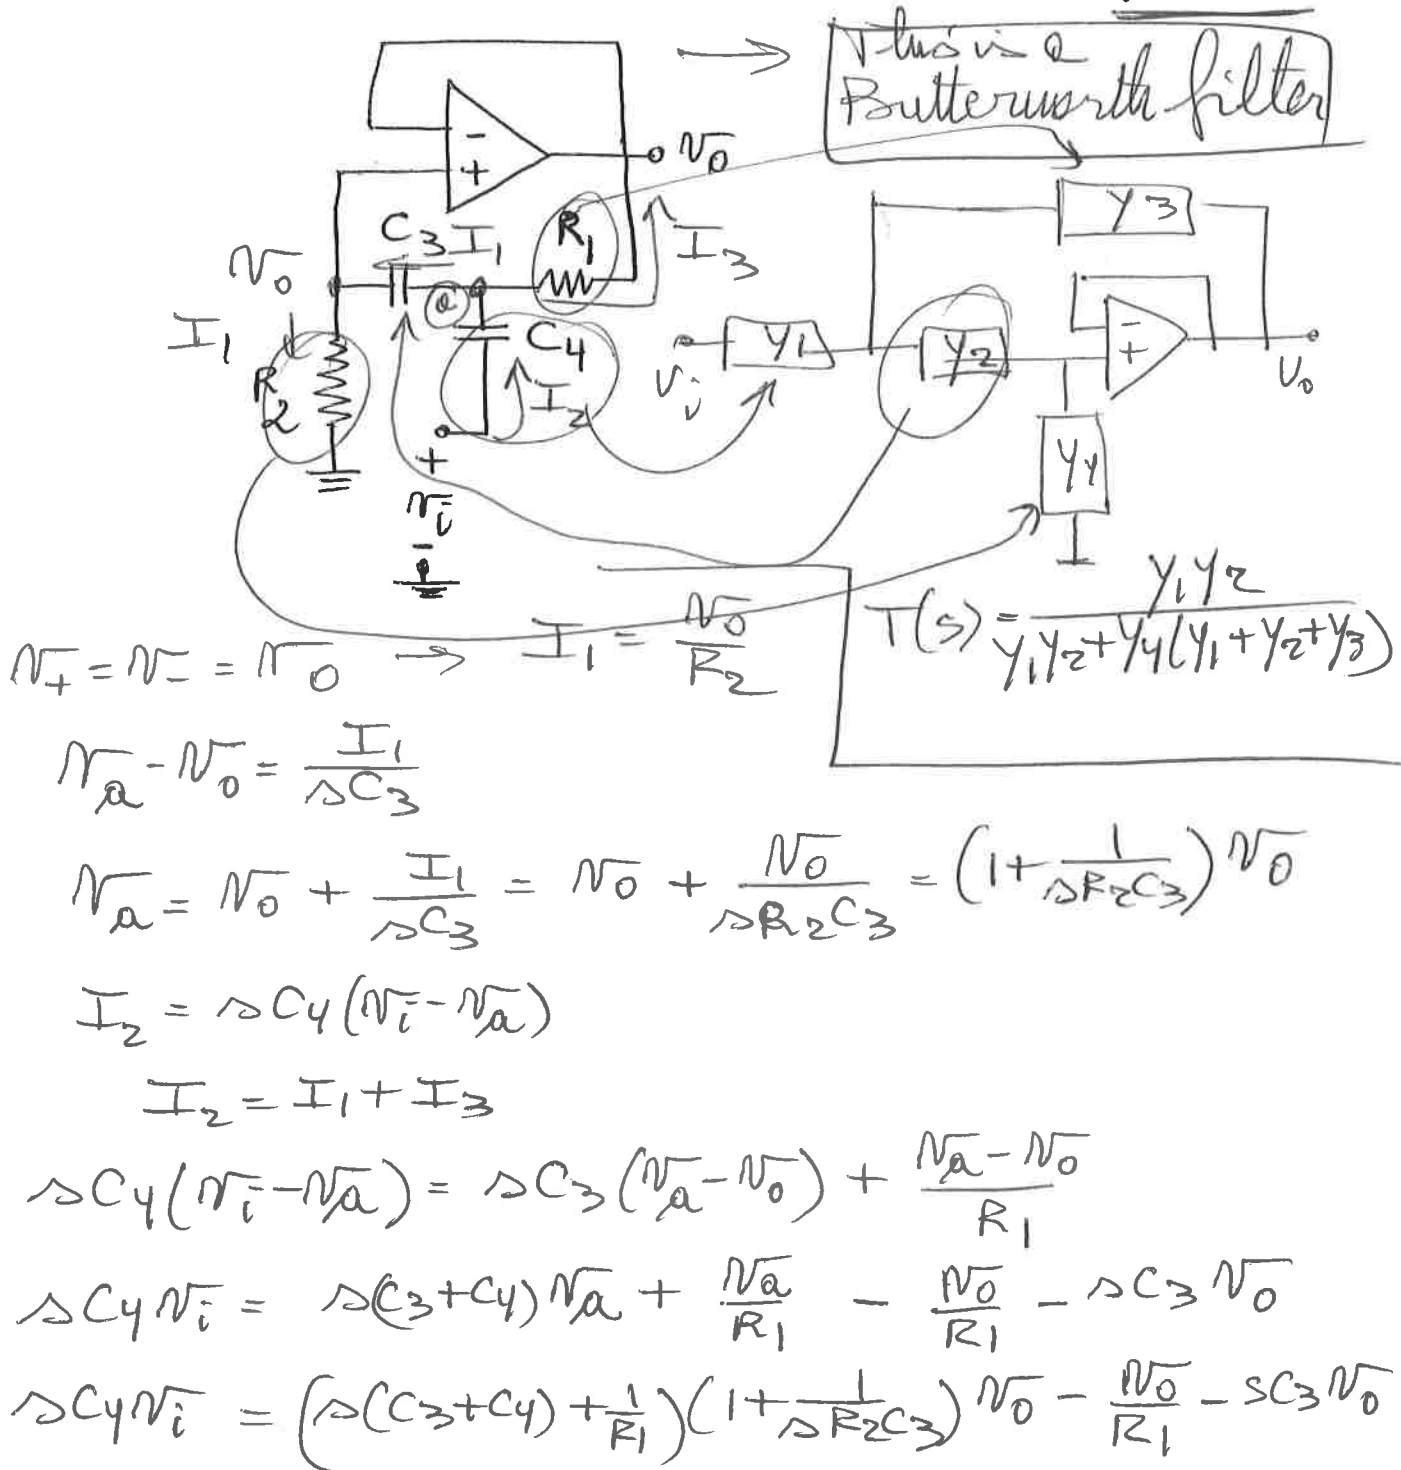 This is a
Butterworth filter
-
+
v₀
C₃ I₁
R₁
I₃
v₀
a
I₁
C₄
R₂
I₂
+
vᵢ
-
Y₃
Y₁
Y₂
-
+
Vᵢ
V₀
Y₄
T(s) = Y₁Y₂ / (Y₁Y₂+Y₄(Y₁+Y₂+Y₃))
v₊ = v₋ = v₀ → I₁ = v₀/R₂
vₐ - v₀ = I₁/(sC₃)
vₐ = v₀ + I₁/(sC₃) = v₀ + v₀/(sR₂C₃) = (1+1/(sR₂C₃)) v₀
I₂ = sC₄(vᵢ-vₐ)
I₂ = I₁ + I₃
sC₄(vᵢ-vₐ) = sC₃(vₐ-v₀) + (vₐ-v₀)/R₁
sC₄vᵢ = s(C₃+C₄)vₐ + vₐ/R₁ - v₀/R₁ - sC₃v₀
sC₄vᵢ = (s(C₃+C₄)+1/R₁)(1+1/(sR₂C₃)) v₀ - v₀/R₁ - sC₃v₀